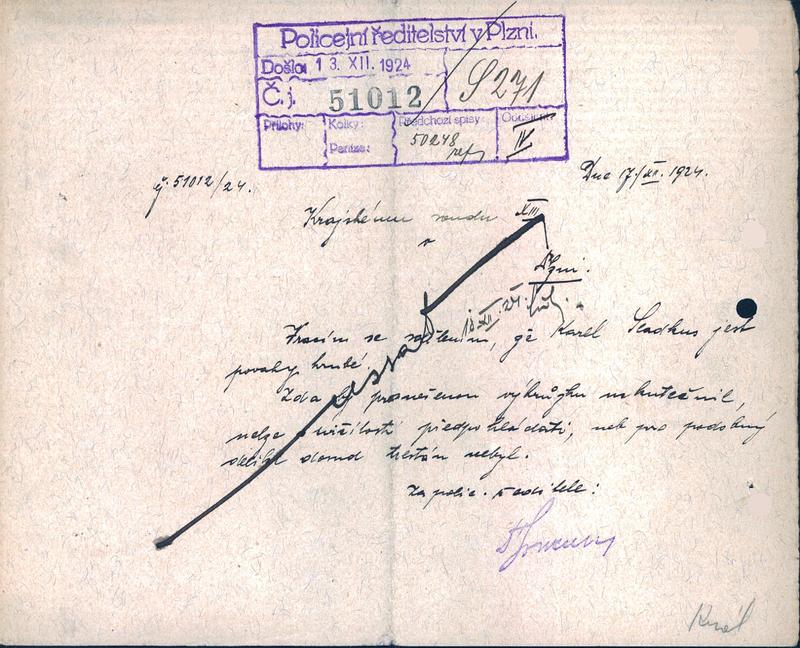 Policejní ředitelství v Plzni.
Došlo: 13. XII. 1924
Č. j. 51012
S 271
Přílohy:
Kolky:
Peníze:
Předchozí spisy:
50248
IV
č. 51012/24.
Dne 17/XII. 1924.
Krajskému soudu XIII
v
Plzni.
Vracím se sdělením, že Karel jest
povahy hrubé.
Zda by pronešenou výhrůžku uskutečnil,
nelze s určitostí předpokládati, nebť pro podobný
delikt dosud trestán nebyl.
Za polic. ředitele: